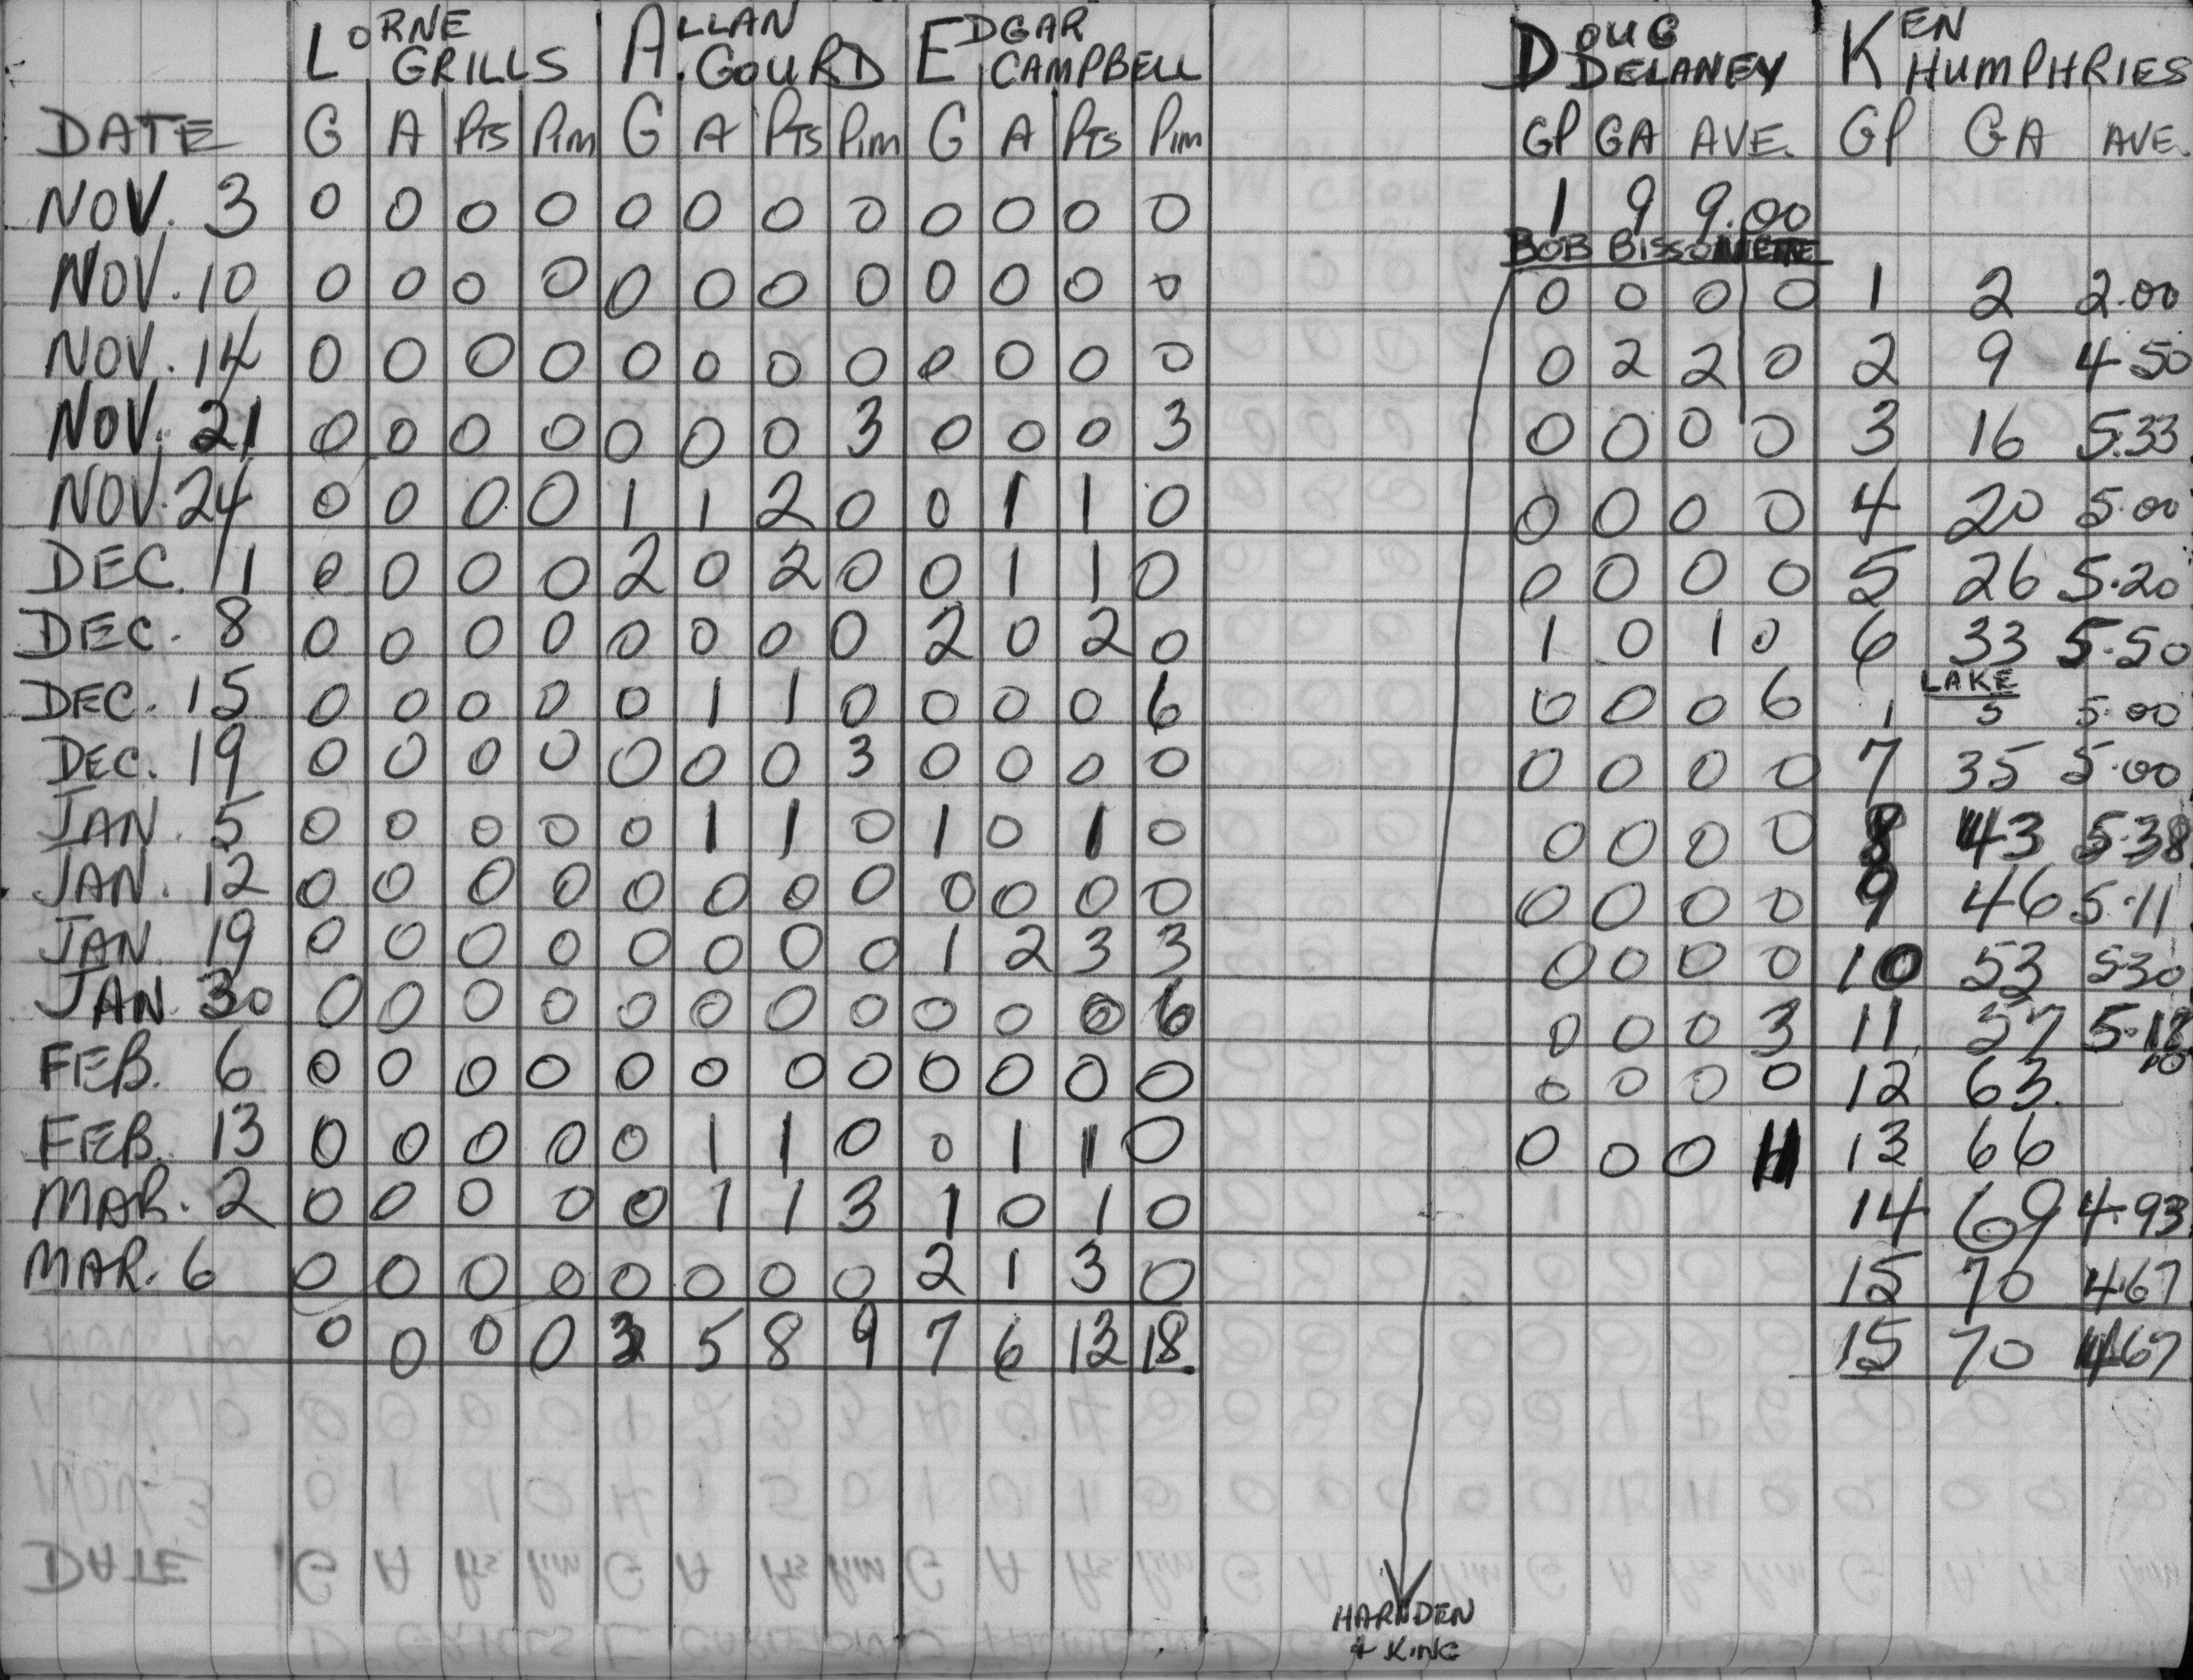 LORNE GRILLS ALLAN GOURD EDGAR CAMPBELL DOUG DELANEY KEN HUMPHRIES
DATE G A PTS PIM G A PTS PIM G A PTS PIM GP GA AVE. GP GA AVE.
NOV. 3 0 0 0 0 0 0 0 0 0 0 0 0 1 9 9.00
BOB BISSONETTE
NOV. 10 0 0 0 0 0 0 0 0 0 0 0 0 0 0 0 0 1 2 2.00
NOV. 14 0 0 0 0 0 0 0 0 0 0 0 0 0 2 2 0 2 9 4.50
NOV. 21 0 0 0 0 0 0 0 3 0 0 0 3 0 0 0 0 3 16 5.33
NOV. 24 0 0 0 0 1 1 2 0 0 1 1 0 0 0 0 0 4 20 5.00
DEC. 1 0 0 0 0 2 0 2 0 0 1 1 0 0 0 0 0 5 26 5.20
DEC. 8 0 0 0 0 0 0 0 0 2 0 2 0 1 0 1 0 6 33 5.50
LAKE
DEC. 15 0 0 0 0 0 1 1 0 0 0 0 6 0 0 0 6 1 5 5.00
DEC. 19 0 0 0 0 0 0 0 3 0 0 0 0 0 0 0 0 7 35 5.00
JAN. 5 0 0 0 0 0 1 1 0 1 0 1 0 0 0 0 0 8 43 5.38
JAN. 12 0 0 0 0 0 0 0 0 0 0 0 0 0 0 0 0 9 46 5.11
JAN. 19 0 0 0 0 0 0 0 0 1 2 3 3 0 0 0 0 10 53 530
JAN 30 0 0 0 0 0 0 0 0 0 0 0 6 0 0 0 3 11 57 5.18
FEB. 6 0 0 0 0 0 0 0 0 0 0 0 0 0 0 0 0 12 63
FEB. 13 0 0 0 0 0 1 1 0 0 1 1 0 0 0 0 13 66
MAR. 2 0 0 0 0 0 1 1 3 1 0 1 0 14 69 4.93
MAR. 6 0 0 0 0 0 0 0 0 2 1 3 0 15 70 4.67
0 0 0 0 3 5 8 9 7 6 13 18. 15 70 4.67
HARNDEN
& KING